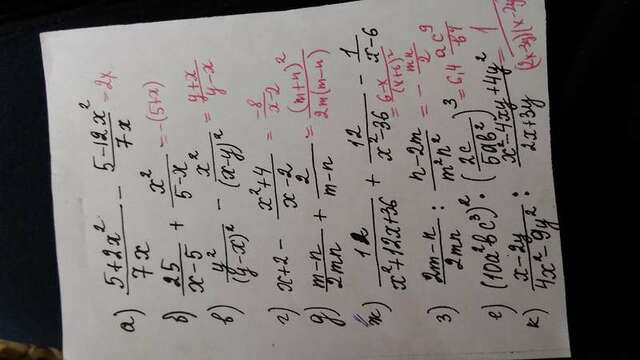 а) (5+2x²)/(7x) − (5−12x²)/(7x) = 2x
б) 25/(x−5) + x²/(5−x) = −(5+x)
в) y²/(y−x)² − x²/(x−y)² = (y+x)/(y−x)
г) x+2 − (x²+4)/(x−2) = −8/(x−2)
д) (m−n)/(2mn) + 2/(m−n) = (m+n)²/(2m(m−n))
ж) 12/(x²+12x+36) + 12/(x²−36) − 1/(x−6) = (6−x)/(x+6)²
з) (2m−n)/(2mn) : (n−2m)/(m²n²) = −mn/2
е) (10a²bc³)² · (2c/(5ab²))³ = 6,4 ac⁹/b⁴
к) (x−2y)/(4x²−9y²) : (x²−4xy+4y²)/(2x+3y) = 1/((2x−3y)(x−2y)